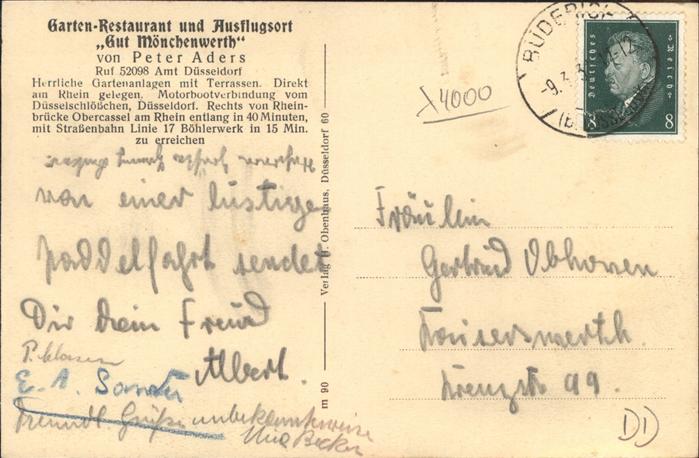 Garten-Restaurant und Ausflugsort
„Gut Mönchenwerth“
von Peter Aders
Ruf 52098 Amt Düsseldorf
Herrliche Gartenanlagen mit Terrassen. Direkt
am Rhein gelegen. Motorbootverbindung vom
Düsselschlößchen, Düsseldorf. Rechts von Rhein-
brücke Obercassel am Rhein entlang in 40 Minuten,
mit Straßenbahn Linie 17 Böhlerwerk in 15 Min.
zu erreichen
von einer lustigen
Paddelfahrt sendet
Dir Dein Freund
Albert.
P. Classen
E. A.
Freundl. Grüße unbekannterweise
Becker
Verlag Obenhaus, Düsseldorf 60
m 90
X4000
BÜDERICH
Deutsches Reich
8 8
Fräulein
Gertrud
Kaiserswerth
99.
DD